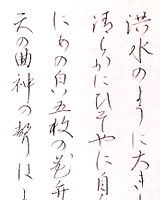 洪水のように大き
清らかにひそやかに自
にあの白い五枚の花弁
天の曲神の聲は